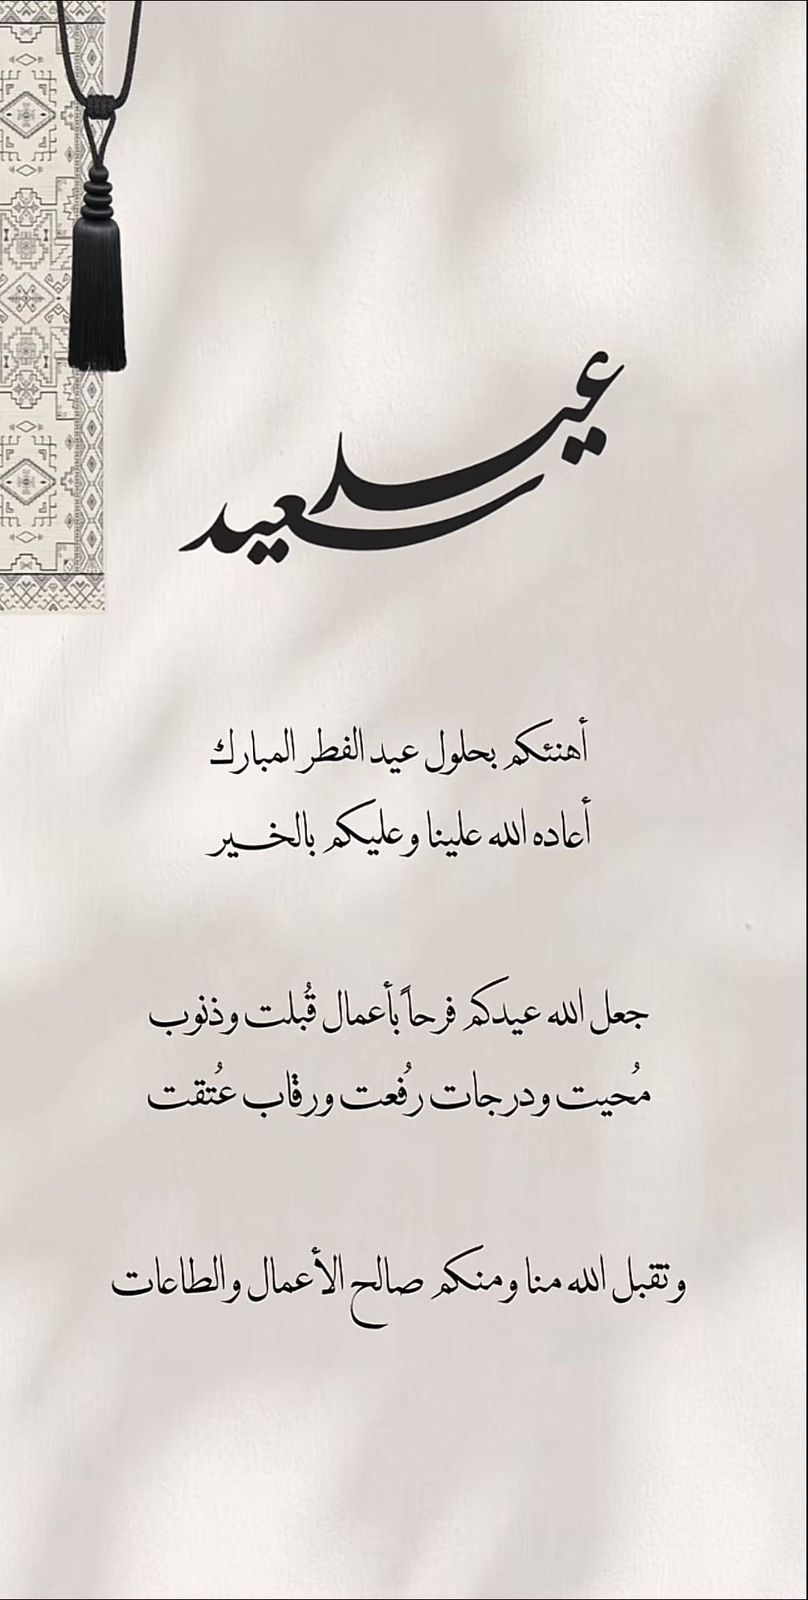 عيد
سعيد
أهنئكم بحلول عيد الفطر المبارك
أعاده الله علينا وعليكم بالخير
جعل الله عيدكم فرحاً بأعمال قُبلت وذنوب
مُحيت ودرجات رُفعت ورقاب عُتقت
وتقبل الله منا ومنكم صالح الأعمال والطاعات